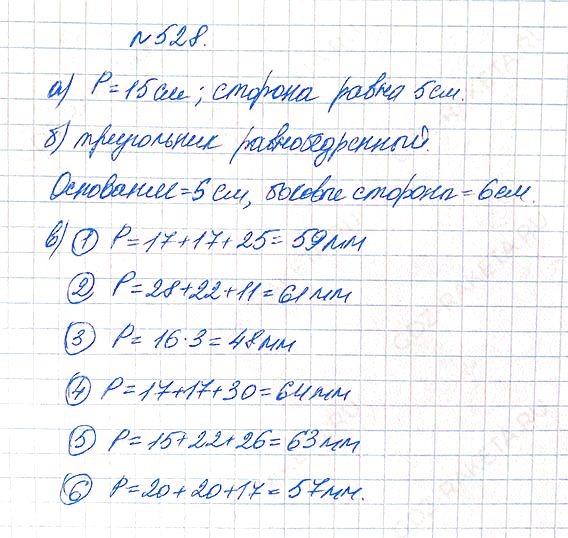 №528.
а) P=15см; сторона равна 5см.
б) треугольник равнобедренный.
Основание=5см, боковые стороны=6см.
в) ① P=17+17+25=59мм
② P=28+22+11=61мм
③ P=16·3=48мм
④ P=17+17+30=64мм
⑤ P=15+22+26=63мм
⑥ P=20+20+17=57мм.
GDZ-RAKETA.RU